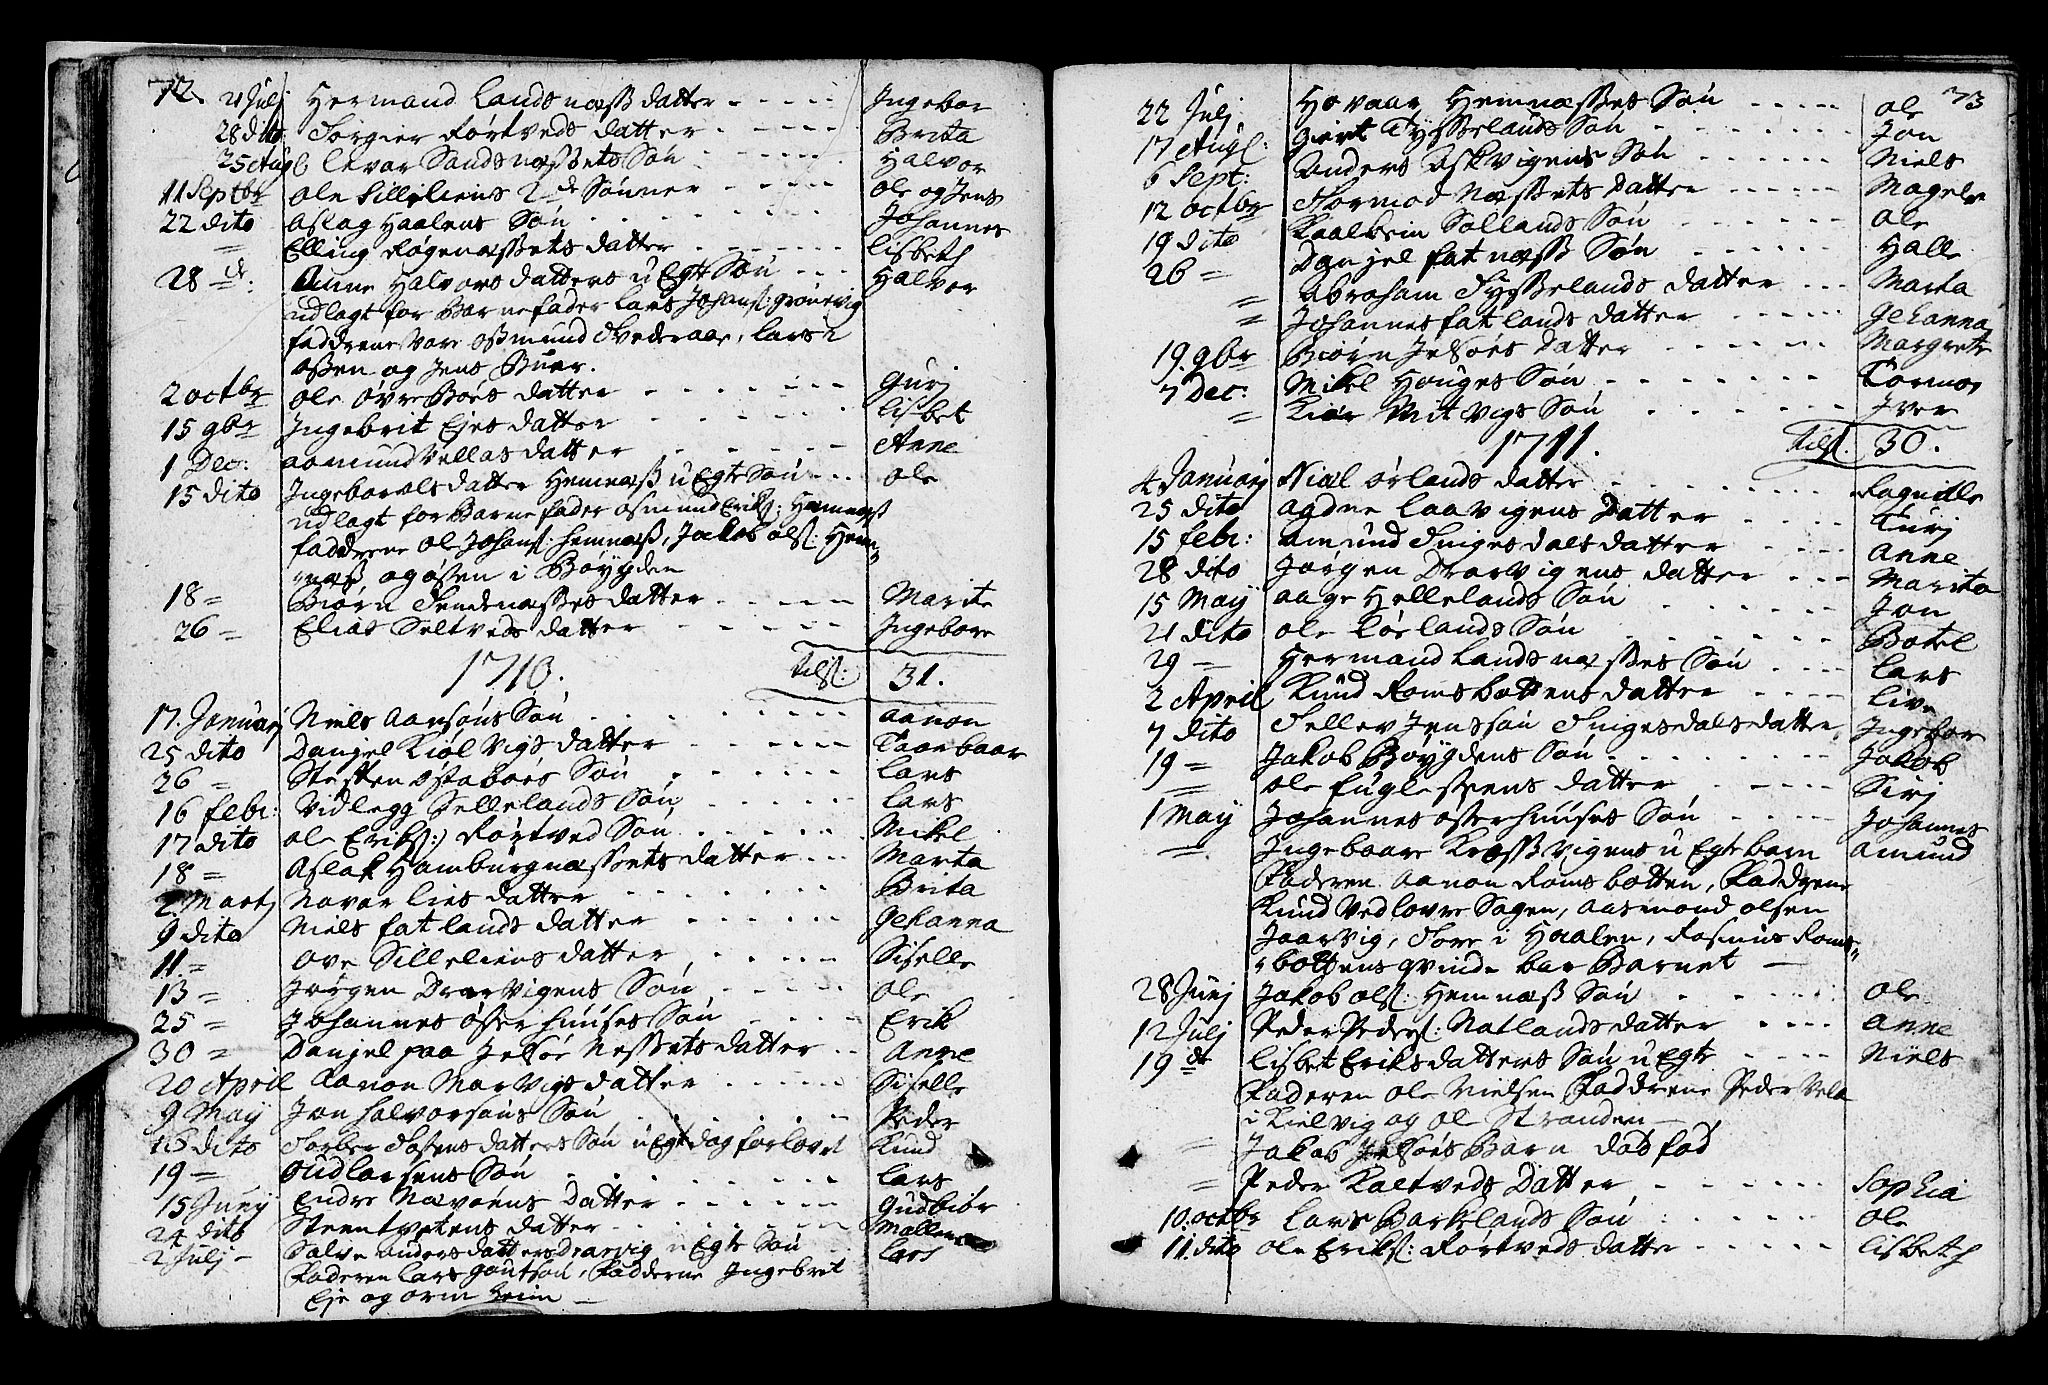 72.
21 Julj Hermand Landsnæss datter - - - - Ingebor
28 dito Torgier Körtveds datter - - - - Brita
25 Aug levar Sandsnæssets Søn - - - - Halvor
11 Septbr ole Silleliens 2de Sønner - - - - ole og Jens
22 dito aslag Haalens Søn - - - - Johannes
" Elling Røgenæssets datter - - - - lisbeth
28 de: Anne Halvors datters u Egte Søn - - - Halvor
udlagt for Barnefader Lars Johans: grønevig
faddrene vare Osmund Vederaae, Lars i
ossen og Jens Buer.
2 octbr ole øvre Boes datter - - - - Gurj
15 9br Ingebrit Ejes datter - - - - lisbet
1 Dec: aamund Vellas datter - - - - Anne
15 dito Ingebor ols datter Hemnæss u Egte Søn - - - ole
udlagt for Barne fader osmund Eriks: Hemness
faddrene ole Johans: hemnæss, Jakob ols: Hem=
=næss, og øsen i Bøygden
18 = Biørn Tendenæsses datter - - - - Marite
26 = Elias Seltveds datter - - - - Ingebore
1710. Tils: 31.
17. Januarj Niels Aansøns Søn - - - - aanon
25 dito Danjel Kiølvigs datter - - - - Taarbaar
26 = Steffen østabøes Søn - - - - Lars
16 febr: Vidlegg Sellelands Søn - - - - Lars
17 dito ole Eriks:) Körtved Søn - - - - Mikel
18 = Aslak Hamburgnæssets datter - - - Marta
2 Martj Navar lies datter - - - - Brita
9 dito Niels fatlands datter - - - - Gehanna
11 = ove Silleliens datter - - - - Siselle
13 = Jørgen Drarvigens Søn - - - - ole
25 = Johannes østerhuuses Søn - - - - Erik
30 = Danjel paa Jelsøe Nessets datter - - Anne
20 April Aanon Marvigs datter - - - - Siselle
9 May Jon halvorsøns Søn - - - - Peder
16 dito Torber Tosens datters Søn u Egte dog forlovet Knud
19 = Gudlaesens Søn - - - - Lars
15 Junj Endre Nævøens Datter - - - - Gudbiør
24 dito Steentvetens datter - - - - Mallene
2 Julj - Salve anders datters drarvig u Egte Søn - - Lars
Faderen Lars Gautsøn, Fadderne Ingebrit
Eje og orm heim -
73
22 Julj Hovaar Hemnæsses Søn - - - - ole
17 Aug: giert Tysselands Søn - - - - Jon
6 Sept: Anders Askvigens Søn - - - - Niels
12 octbr Tormod Næssets datter - - - - Magele
19 dito Kaalbein Sollands Søn - - - - ole
26 = Danjel fatnæss Søn - - - - Halle
= Abraham Tysselands datter - - - Marta
= Johannes fatlands datter - - - - Gehanna
19. 9br Biørn Jelsøes datter - - - - Margrete
7 Dec: Mikel Houges Søn - - - - Tormod
= Kiær Mitvigs Søn - - - - Iver
1711. Tils: 30.
4 Januarj Nial ørlands datter - - - - Ragnille
25 dito agdne laavigens Datter - - - - Turj
15 febr: amund Tingesdals datter - - - - Anne
28 dito Jørgen Drarvigens datter - - - Marita
15 May aage Hellelands Søn - - - - Jon
21 dito ole Løelands Søn - - - - Botel
29 = Hermand Landsnæsses Søn - - - - Lars
2 April Knud Romsbottens datter - - - - Live
7 dito Tellev Jenssøn Tingesdals datter, Ingebor
19 = Jakob Bøygdens Søn - - - - Jakob
= ole fuglesteens datter - - - - Sirj
1 May Johannes østerhuuses Søn - - - - Johannes
= Ingebaare Kræssvigens u Egte barn Amund
Faderen Aanon Romsbotten, Faddrene
Knud Ved lovre Sagen, Aasmond olsen
Jaarvig, Tore i Haalen, Rasmus Roms=
=bottens qvinde bar Barnet -
28 Junj Jakob ols: Hemnæss Søn - - - - ole
12 Julj Peder Peders: Natlands datter - - - - Anne
19 de lisbet Eriks datters Søn u Egte - - - - Niels
Faderen ole Nielsen Faddrene Peder Vela
i Kielvig og ole Stranden -
= Jakob Jelsøes Barn død fød
= Peder Kaltveds Datter - - - - Sophia
10. octbr Lars Barkelands Søn - - - - ole
11. dito ole Eriks: Körtveds datter - - - - lisbeth